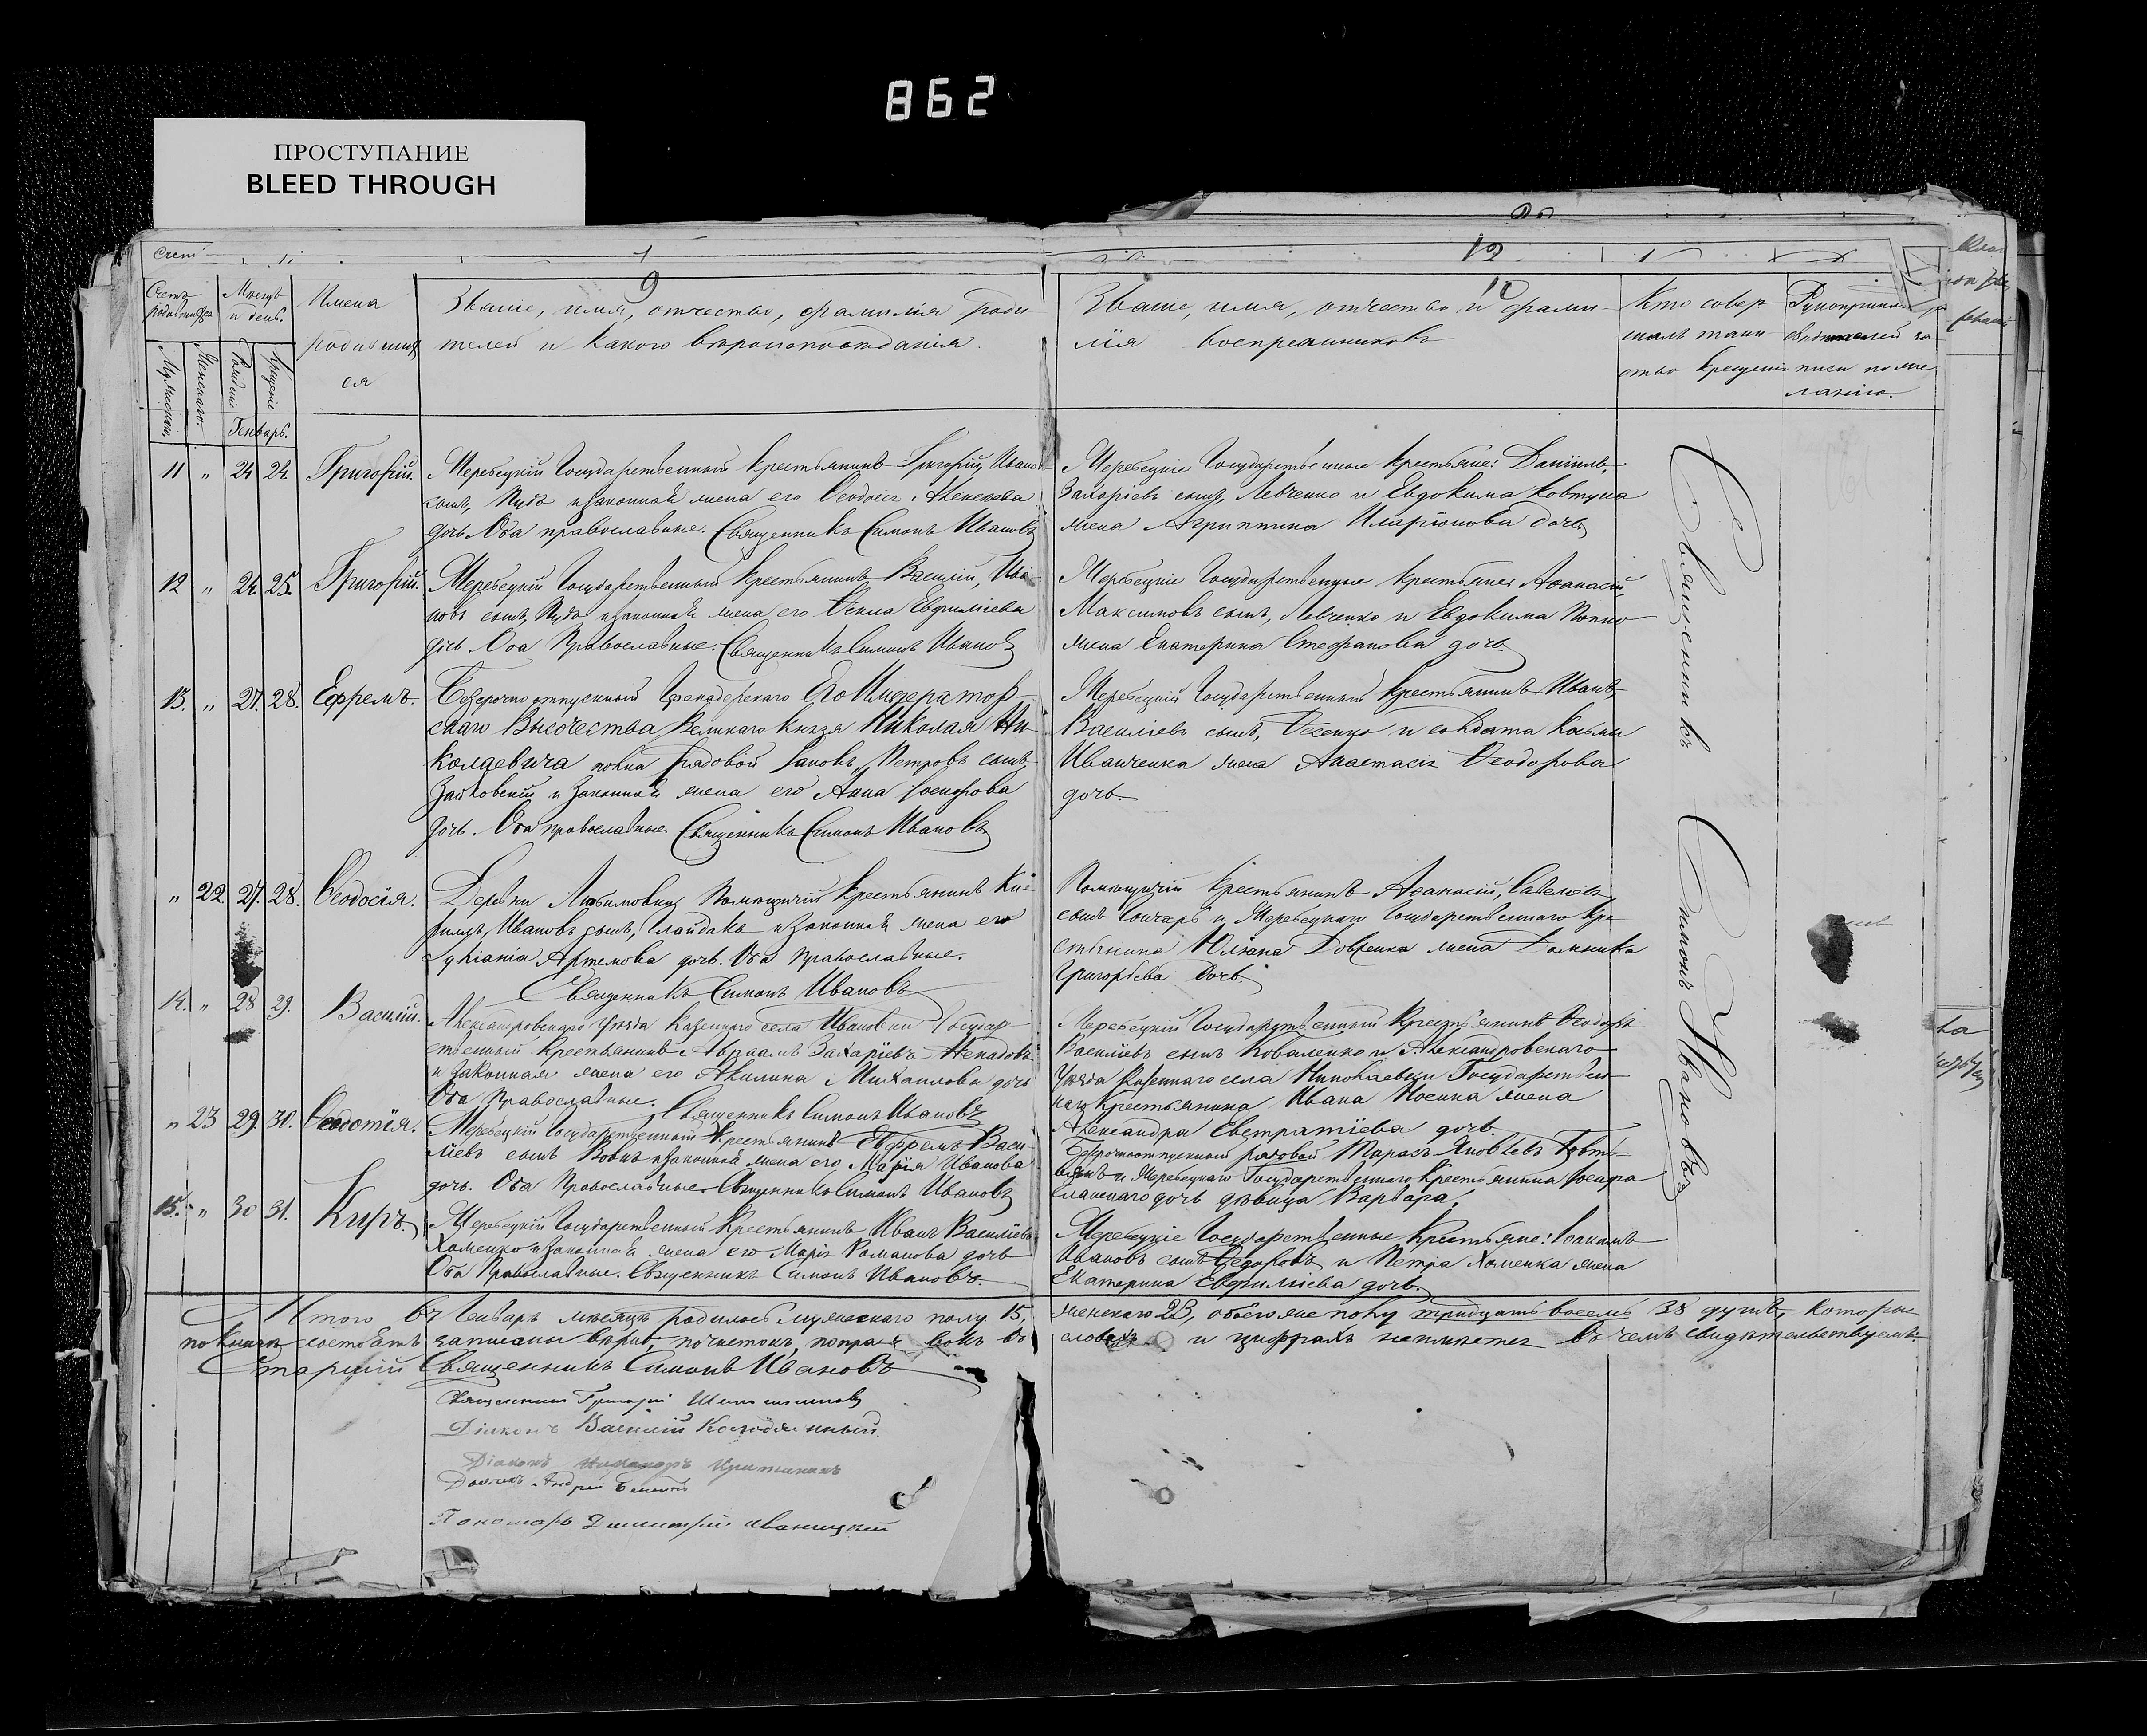 862
ПРОСТУПАНИЕ
BLEED THROUGH
Счетъ родившихся
Мѣсяцъ и день.
Имена родившихся
9
Званіе, имя, отчество, фамилія роди
телей и какого вѣроисповѣданія.
10
Званіе, имя, отчество и фами-
лія воспреемниковъ
Кто совер
шалъ таин
ство крещенія
Рукоприкл.
свидѣтелей за
писи по же
ланію.
Мужескаго.
Женскаго.
Рожденія
Крещенія
Генварь.
11 " 24 24 Григорій.
Жеребецкій Государственный крестьянинъ Григорій Ивановъ
сынъ, и законная жена его Ѳеодосія Алексеева
дочь. Оба православные. Священникъ Симонъ Ивановъ
Жеребецкіе Государственные крестьяне: Даніилъ
Захаріевъ сынъ, Левченко и Евдокима Ковтуна
жена Агриппина Иларіонова дочь
12 " 24. 25. Григорій.
Жеребецкій Государственный крестьянинъ Василій, Ива-
новъ сынъ, и законная жена его Ѳекла Евфиміева
дочь. Оба Православные. Священникъ Симонъ Ивановъ
Жеребецкіе Государственные крестьяне Аѳанасій
Максимовъ сынъ, Левченко и Евдокима
жена Екатерина Стефанова дочь.
13. " 27. 28. Ефремъ.
Безсрочноотпускный Его Император
скаго Высочества Великаго Князя Николая Ни
колаевича полка рядовой Іаковъ, Петровъ сынъ,
Зайковскій и законная жена его Анна Іосифова
дочь. Оба православные. Священникъ Симонъ Ивановъ
Жеребецкій Государственный крестьянинъ Иванъ
Василіевъ сынъ, и солдата Козьмы
Иванченка жена Анастасія Ѳеодорова
дочь.
" 22. 27. 28. Ѳеодосія.
Деревни Любимовки Помѣщичій крестьянинъ Ки-
риллъ, Ивановъ сынъ, Глайдакъ и законная жена его
Лукіанія Артемова дочь. Оба православные.
Священникъ Симонъ Ивановъ
Помѣщичій крестьянинъ Аѳанасій, Савеліевъ
сынъ Гончаръ и Жеребецкаго Государственнаго кре
стьянина Юліана Довженка жена Домника
Григоріева дочь.
14. " 28 29. Василій.
Александровскаго уѣзда казеннаго села Ивановки Государ
ственный крестьянинъ Авраамъ Захаріевъ Ненадовъ
и законная жена его Акилина Михаилова дочь
Оба Православные. Священникъ Симонъ Ивановъ
Жеребецкій Государственный Крестьянинъ Ѳеодоръ
Василіевъ сынъ Коваленко и Александровскаго
уѣзда казеннаго села Николаевки Государствен
наго Крестьянина Ивана Носика жена
Александра Евстратіева дочь.
" 23 29. 30. Ѳеодотія.
Жеребецкій Государственный крестьянинъ Ефремъ Васи
ліевъ сынъ Вовкъ и законная жена его Марія Иванова
дочь. Оба Православные. Священникъ Симонъ Ивановъ
Безсрочноотпускный рядовой Тарасъ Яковлевъ
и Жеребецкаго Государственнаго Крестьянина Іосифа
дочь дѣвица Варвара.
15. " 30 31. Киръ.
Жеребецкій Государственный Крестьянинъ Иванъ Василіевъ
Хоменко и законная жена его Марія Романова дочь
Оба Православные. Священникъ Симонъ Ивановъ.
Жеребецкіе Государственные Крестьяне: Іоакимъ
Ивановъ сынъ Ѳедоровъ и Петра Хоменка жена
Екатерина Евфиміева дочь.
Священникъ Симонъ Ивановъ
Итого въ Генварѣ мѣсяцѣ родилось мужескаго полу 15, женскаго 23, обоего же полу тридцать восемь 38 душъ, которые
по книгѣ состоятъ записаны вѣрно, почистокъ, поправокъ въ словахъ и цифрахъ неимѣется въ чемъ свидѣтельствуемъ.
Старшій Священникъ Симонъ Ивановъ
Священникъ Григорій
Діаконъ Василій
Діаконъ
Дьячекъ Андрей
Пономарь Димитрій Иваницкій